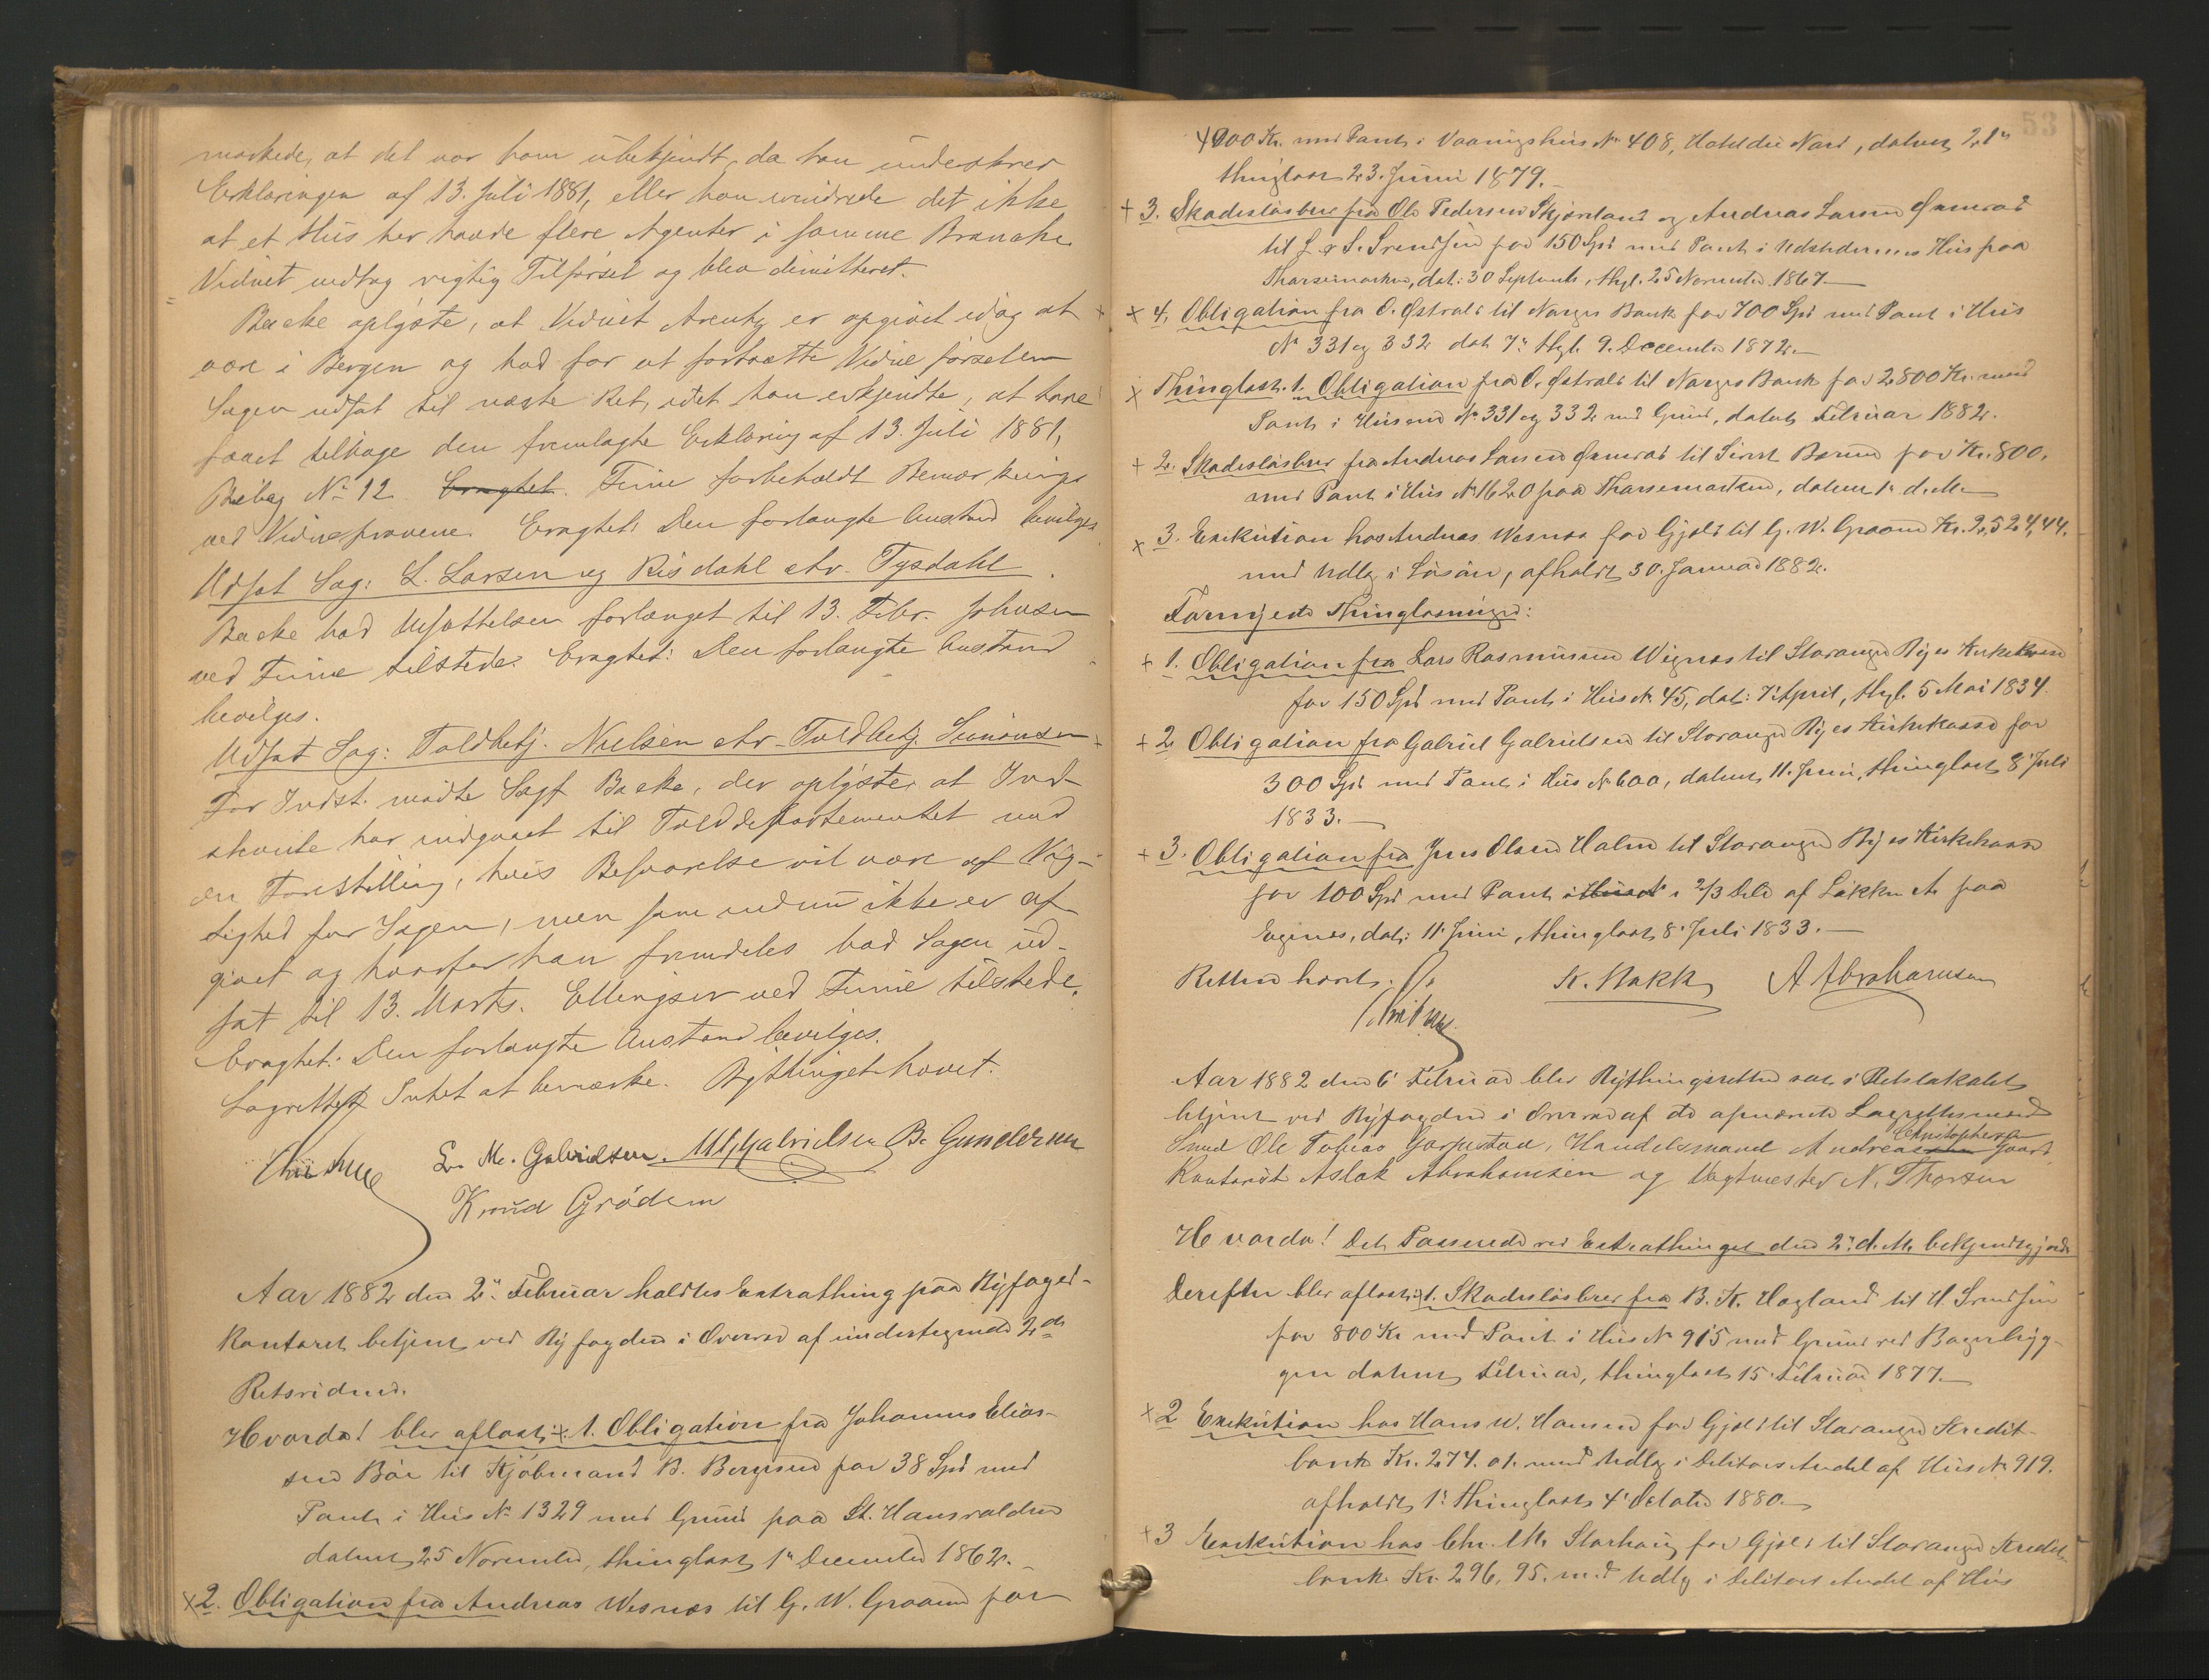 mærkede, at det var ham ubekjendt, da han underskrev
Erklæringen af 13. Juli 1881, eller han erindrede det ikke
at et Hus her havde flere Agenter i samme Branche.
Vidnet vedtog rigtig Tilførsel og blev dimitteret.
Backe oplyste, at Vidnet Arentz er opgivet idag at
være i Bergen og bad for at fortsætte Vidneførselen
Sagen udsat til næste Ret, idet han erkjendte, at have
faaet tilbage den fremlagte Erklæring af 13. Juli 1881,
Bilag No 12. Eragtet. Finne forbeholdt Bemærkninger
ved Vidneprovene. Eragtet: Den forlangte Anstand bevilges.
Udsat Sag: L. Larsen og Risdahl ctr. Tysdahl
Backe bad Udsættelsen forlænget til 13. Febr. Johnsen
ved Finne tilstede. Eragtet: Den forlangte Anstand
bevilges.
Udsat Sag: Toldbetj. Nielsen ctr. Toldbetj. Simonsen
For Indst. mødte Sagf Backe, der oplyste, at Ind-
stevnte har indgaaet til Tolddepartementet med
en Forestilling, hvis Besvarelse vil være af Vig-
tighed for Sagen, men som endnu ikke er af-
givet og hvorfor han fremdeles bad Sagen ud-
sat til 13. Marts. Ellingsen ved Finne tilstede.
Eragtet: Den forlangte Anstand bevilges.
Lagrettet Intet at bemærke. Bythinget hævet.
L. M. Gabrielsen. M Gabrielsen B. Gundersen
Knud Grødem
Aar 1882 den 2den Februar holdtes Extrathing paa Byfoged-
Kontoret betjent ved Byfogden i Overvær af undertegnede 2de
Retsvidner.
Hvorda! blev aflæst: + 1. Obligation fra Johannes Elias-
sen Bøe til Kjøbmand B. Bergesen for 38 Spd med
Pant i Hus No 1329 med Grund paa St. Hansvolden
dateret 25 November, thinglæst 1ste December 1862.
+ 2. Obligation fra Andreas Wesnæs til G. W. Graarud for
53
4000 Kr. med Pant i Vaaningshus No 408, Holdie Nord, dateret 21de
thinglæst 23. Juni 1879.
+ 3. Skadesløsbrev fra Ole Pedersen Skjørland og Andreas Larsen
til L & S. Svendsen for 150 Spd med Pant i Udstedernes Hus paa
Tharsemarken, dat: 30 September, thgl. 25 November 1867.
+ 4. Obligation fra O. Østvold til Norges Bank for 700 Spd med Pant i Hus
No 331 og 332 dat 7de thgl. 9. December 1872.
+ Thinglæst. 1. Obligation fra O. Østvold til Norges Bank for 2800 Kr. med
Pant i Husene No 331 og 332 med Grund, dateret Februar 1882.
+ 2. Skadesløsbrev fra Andreas Larsen til Sivert Berner for Kr. 800,
med Pant i Hus No 1620 paa Tharsemarken, dateret 1ste d. M.
+ 3. Exekution hos Andreas Wesnæs for Gjæld til G. W. Graarud Kr. 2,524,44.
med Udlæg i Løsøre, afholdt 30. Januar 1882.
Fornyede Thinglæsninger:
+ 1. Obligation fra Lars Rasmussen Wignæs til Stavanger Byes Kirkekasse
for 150 Spd med Pant i Hus No 45, dat: 7 April, thgl. 5 Mai 1834.
+ 2 Obligation fra Gabriel Gabrielsen til Stavanger Byes Kirkekasse for
300 Spd med Pant i Hus No 600, dateret 11. Juni, thinglæst 8 Juli
1833.
+ 3. Obligation fra Jens Olsen Holm til Stavanger Byes Kirkekasse
for 100 Spd med Pant i Hus No i 2/3 Dele af Løkken A. paa
Egenes, dat: 11 Juni, thinglæst 8 Juli 1833.
Retten hævet. K. Kakk A Abrahamsen
Aar 1882 den 6te Februar blev Bythingsretten sat i Retslokalet
betjent ved Byfogden i Overvær af de opnævnte Lagrettesmænd
Smed Ole Tobias Garpestad, Handelsmand Andreas Christophersen Gaard,
Kontorist Aslak Abrahamsen og Vagtmester N. Thorsen
Hvorda! Det Passerede ved Extrathinget den 2den d. M. bekjendtgjordes
Derefter blev aflæst: + 1. Skadesløsbrev fra B. K. Hagland til H. Svendsen
for 800 Kr med Pant i Hus No 915 med Grund ved Bagerbryg-
gen dateret Februar, thinglæst 15 Februar 1877.
+ 2 Exekution hos Hans W. Hansen for Gjæld til Stavanger Kredit-
bank Kr. 274. 01. med Udlæg i Debitors Andel af Hus No 919.
afholdt 1ste thinglæst 4de Oktober 1880.
+ 3 Exekution hos Chr. M. Storhaug for Gjæld til Stavanger Kredit-
bank Kr. 296, 95. med Udlæg i Debitors Andel af Hus